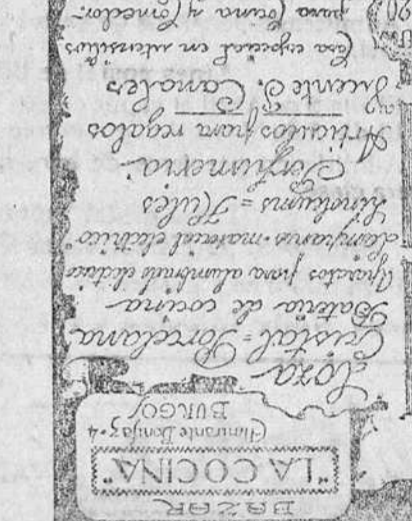 BAZAR
"LA COCINA"
Almirante Bonifaz, 4
BURGOS
Loza
Cristal = Porcelana
Batería de cocina
Aparatos para alumbrado eléctrico
Lámparas = material eléctrico
Linoleums = Hules
Perfumería
Artículos para regalos
Vicente S. Canales
Casa especial en utensilios
para Cocina y Comedor